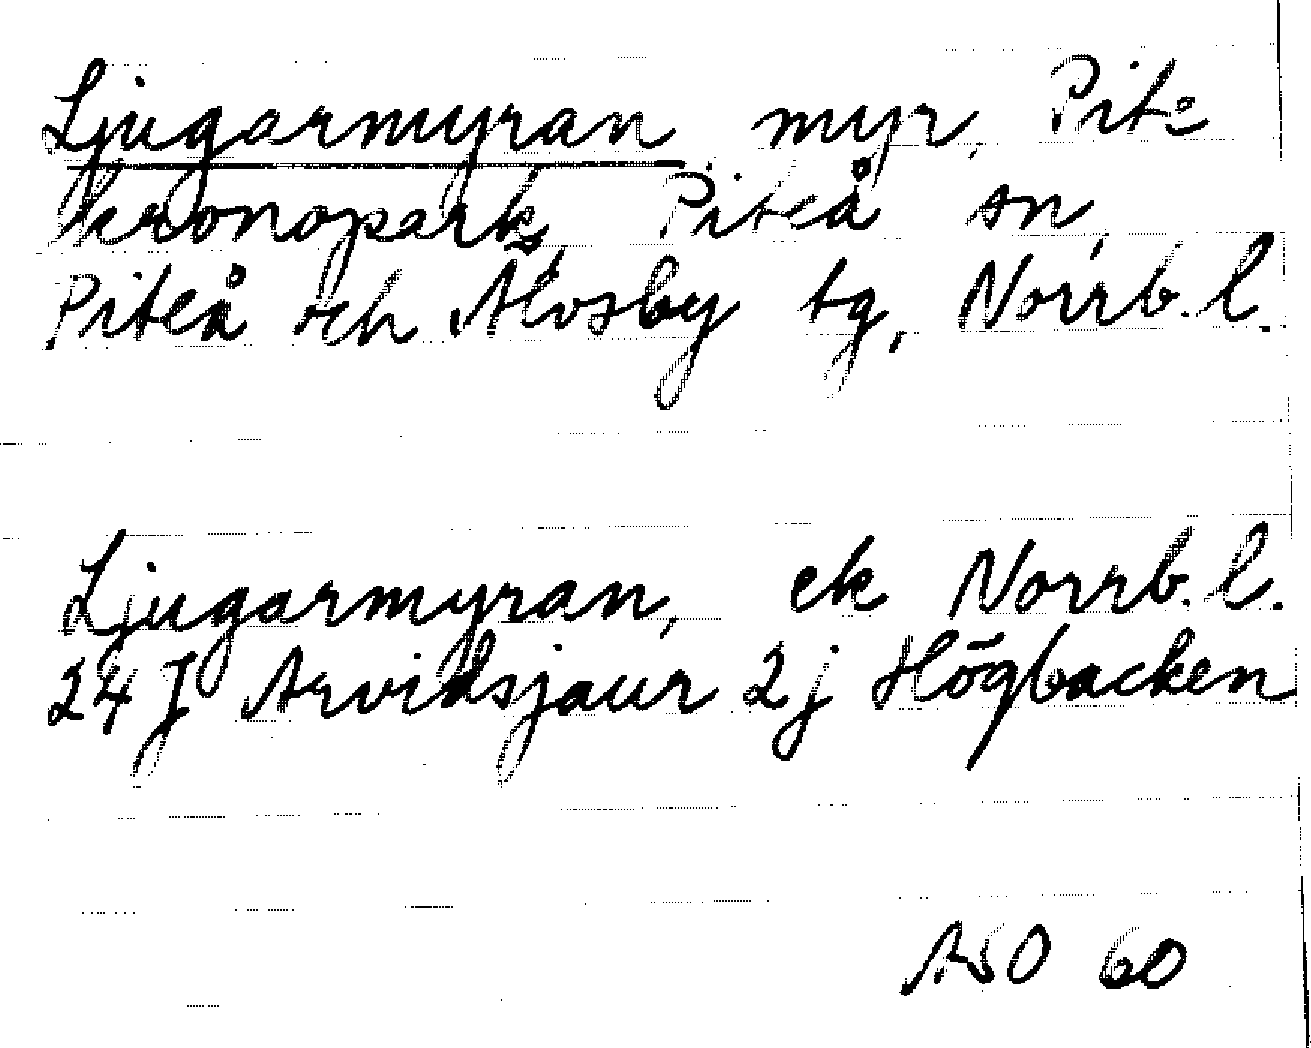 Ljugarmyran, myr, Pite
kronopark, Piteå sn,
Piteå och Älvsby tg, Norrb. l.
Ljugarmyran, ek Norrb. l.
24 J Arvidsjaur 2 j Högbacken
ASO 60